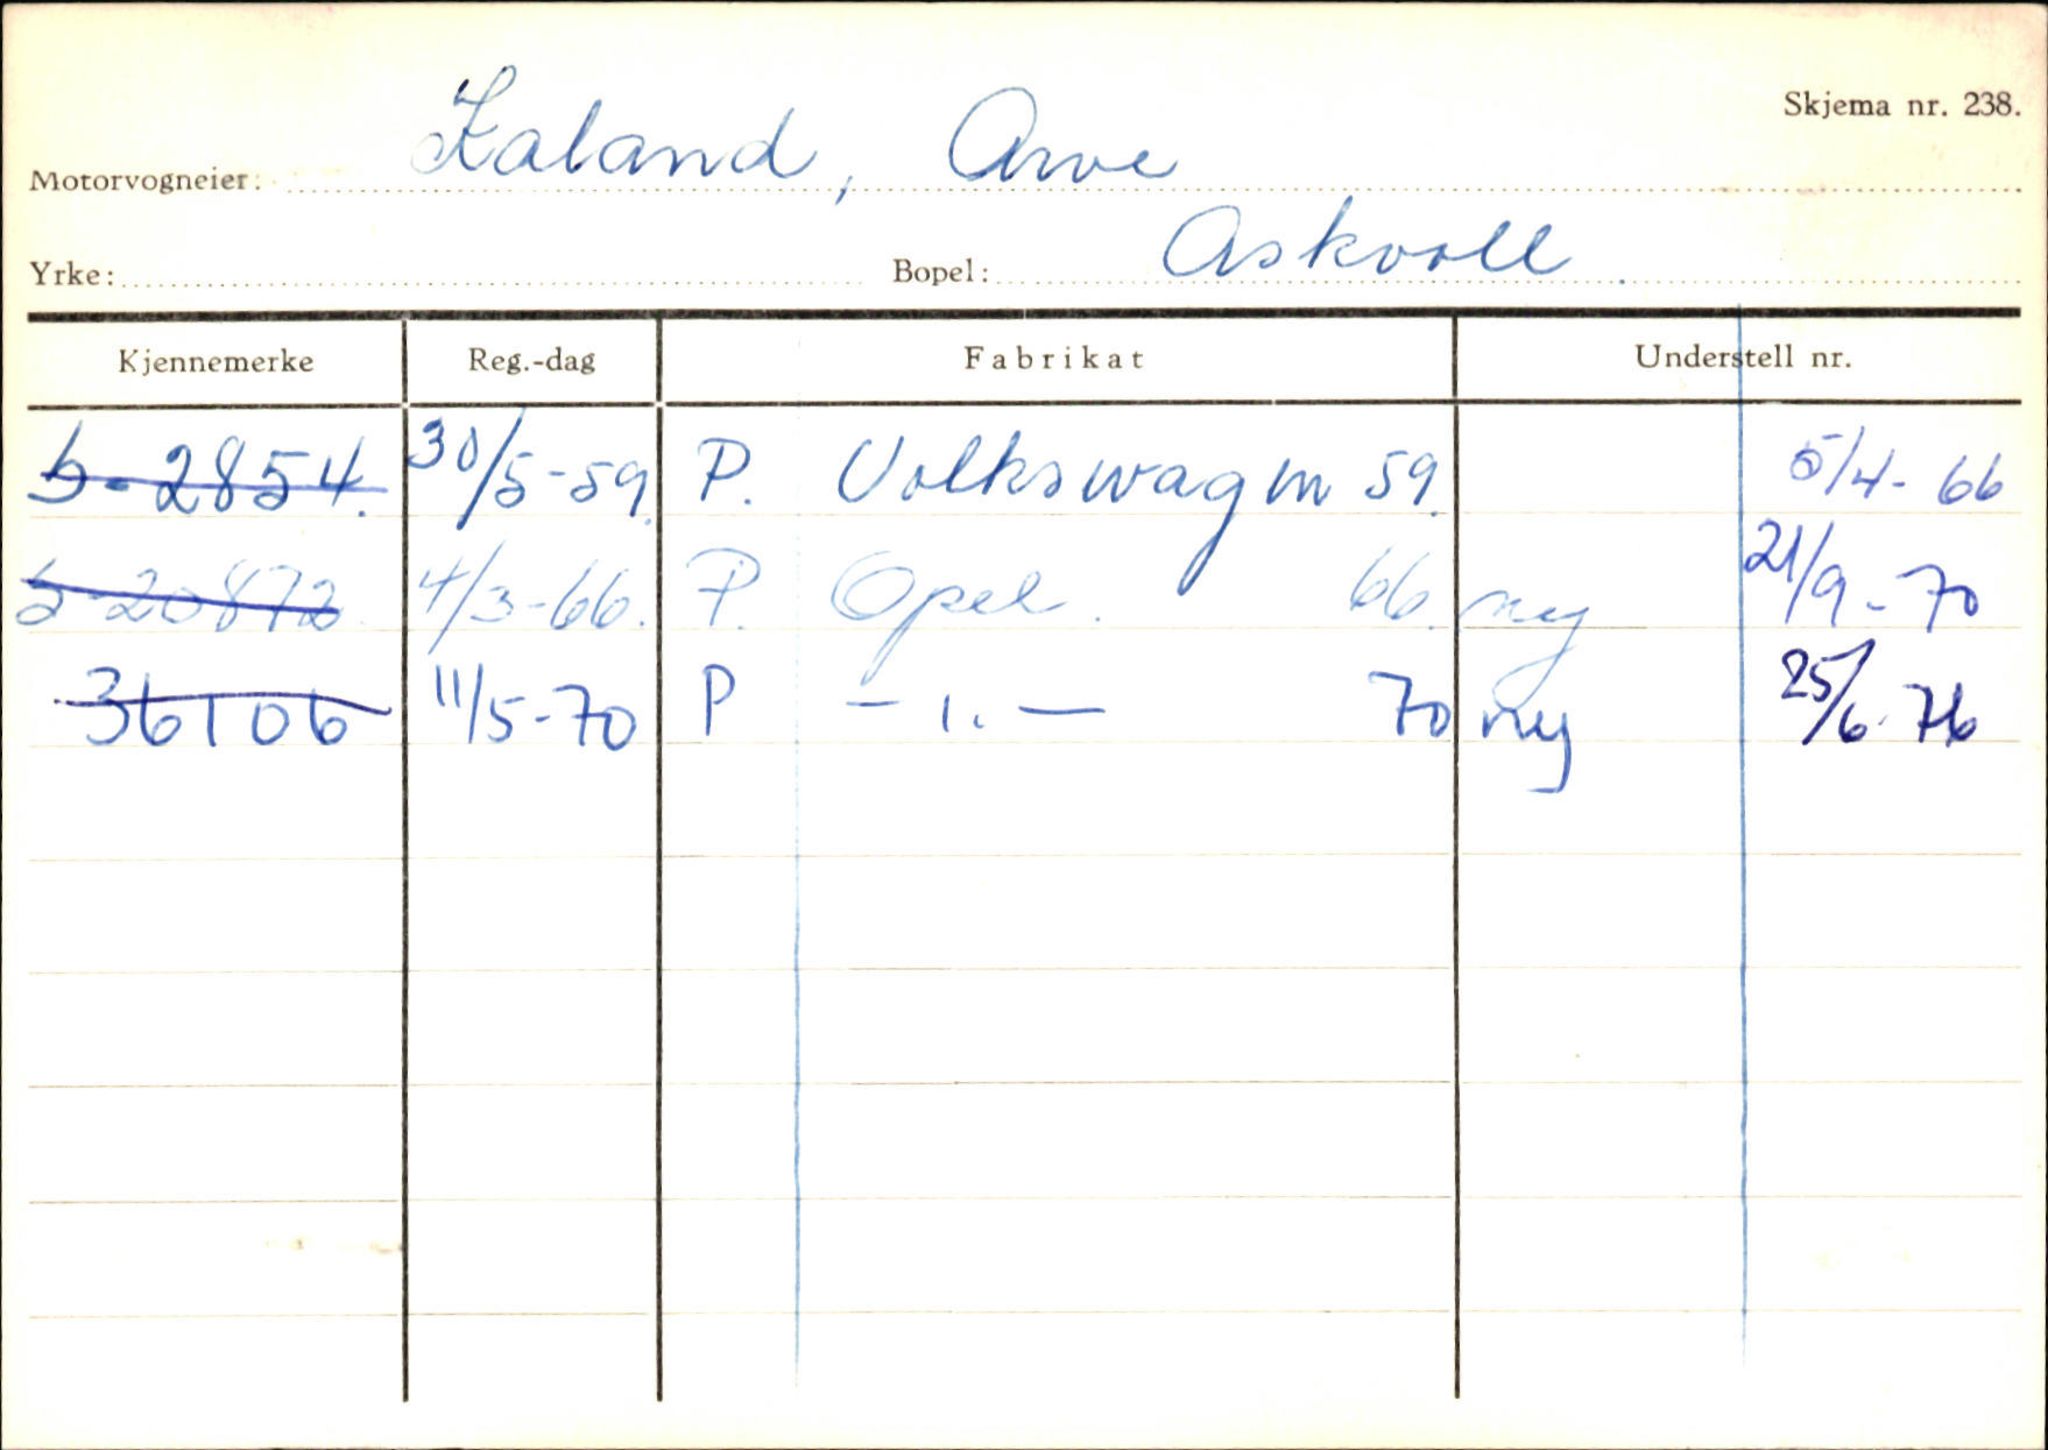 Skjema nr. 238.
Motorvogneier: Laland, Arve
Yrke: Bopel: Askvoll.
Kjennemerke Reg.-dag Fabrikat Understell nr.
S-2854. 30/5-59. P. Volkswagen 59. 5/4-66
S-20872 4/3-66. P. Opel. 66. ny 21/9-70
36106 11/5-70 P -"- 70 ny 25/6-76